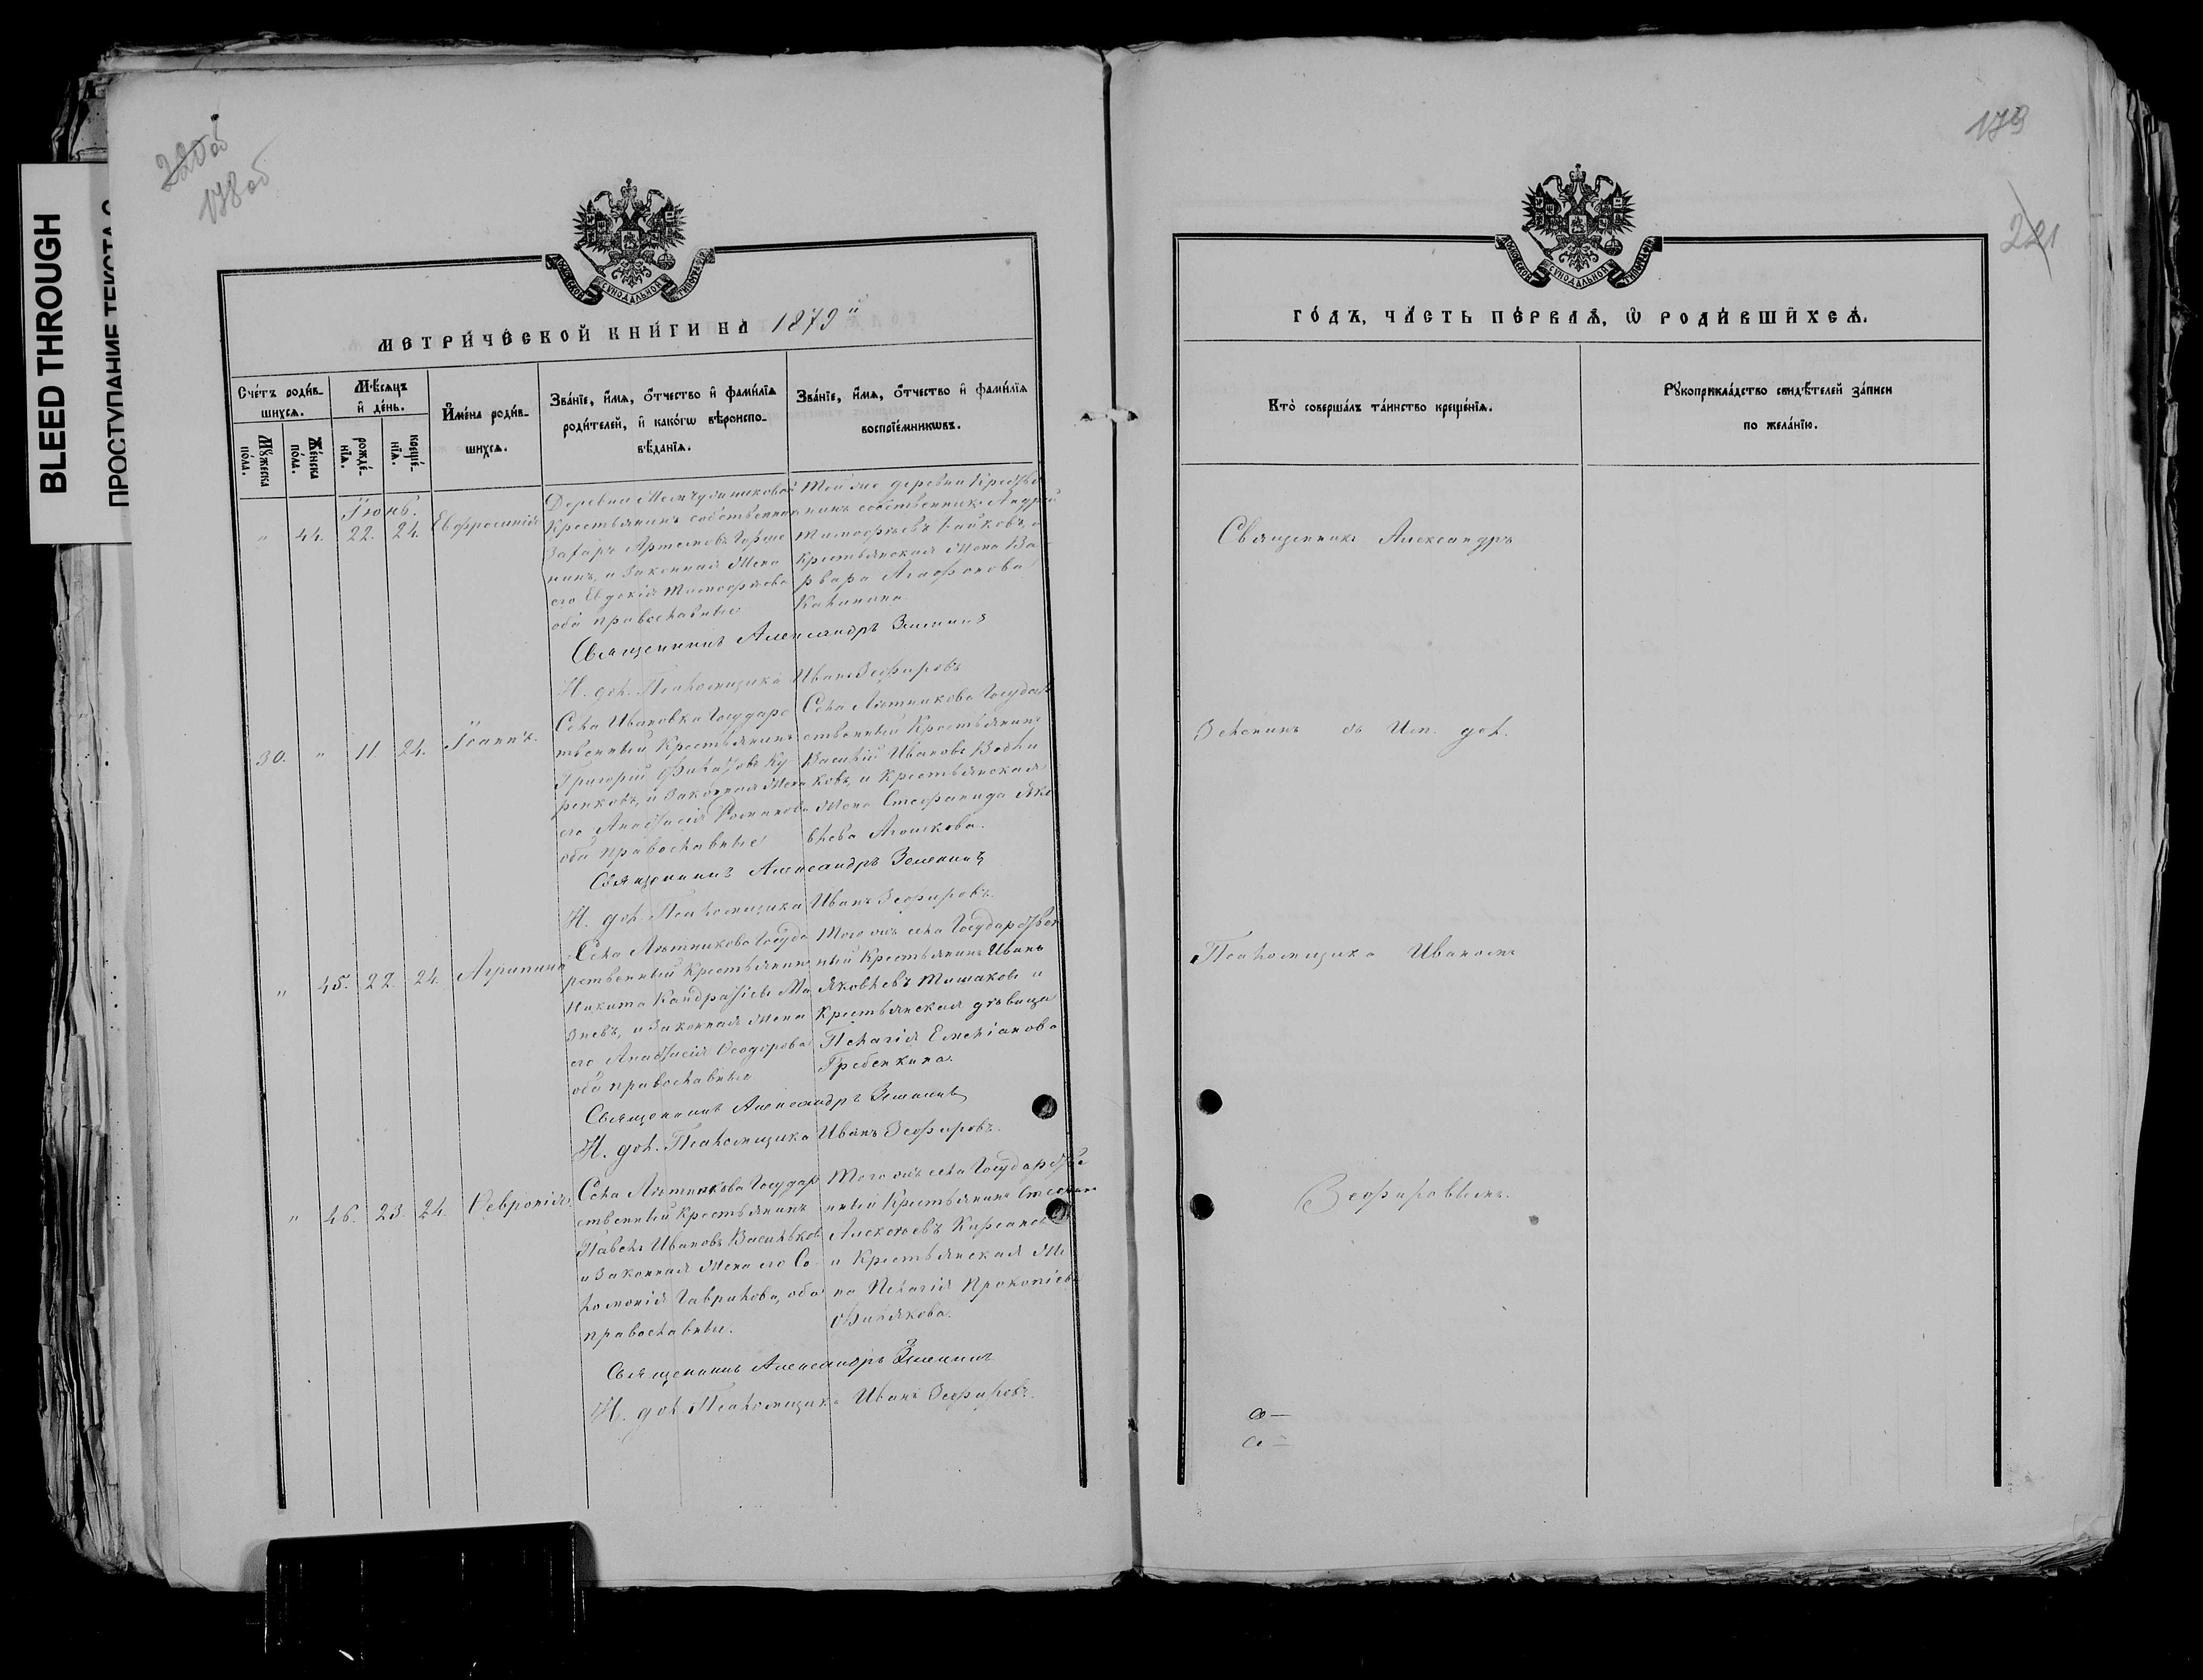 BLEED THROUGH
ПРОСТУПАНИЕ ТЕКСТА С
220 об
178 об
МЕТРИЧЕСКОЙ КНИГИ НА 1879й
Счетъ родив-
шихся.
Мужеска
пола.
Женска
пола.
Мѣсяцъ
и день.
рожде-
нія.
креще-
нія.
Имена родив-
шихся.
Званіе, имя, отчество и фамилія
родителей, и какогѡ вѣроиспо-
вѣданія.
Званіе, имя, отчество и фамилія
воспріемниковъ.
Іюнь.
" 44. 22. 24. Евфросинія
Деревни
Крестьянинъ собственникъ
Захаръ Артемовъ
нинъ, и Законная Жена
его Евдокія Тимофѣева
оба православные
Той же деревни Крестья
нинъ собственникъ Андрей
Тимофѣевъ и
Крестьянская Жена Ва
рвара Агафонова
Священникъ Александръ Зеленинъ
И. дол. Псаломщика Иванъ Зефировъ
30. " 11. 24. Іоаннъ.
Села Ивановка Государс
твенный Крестьянинъ
Григорій Филатовъ Ку-
ренковъ, и Законная Жена
его Анастасія Романова
оба православные
Села Лѣтникова Государ
ственный Крестьянинъ
Василій Ивановъ
ковъ, и Крестьянская
Жена Стефанида Яко
влева Агошкова.
Священникъ Александръ Зеленинъ
И. дол. Псаломщика Иванъ Зефировъ.
" 45. 22. 24. Агрипина
Села Лѣтникова Госуда
рственный Крестьянинъ
Никита Кандратіевъ Ма
зневъ, и Законная Жена
его Анастасія Ѳеодорова
оба православные
Того жъ села Государствен
ный Крестьянинъ Иванъ
Яковлевъ Тишаковъ и
Крестьянская дѣвица
Пелагія Емеліанова
Гребенкина.
Священникъ Александръ Зеленинъ
И. дол. Псаломщика Иванъ Зефировъ.
" 46. 23. 24. Ѳевронія
Села Лѣтникова Государ
ственный Крестьянинъ
Павелъ Ивановъ Васильков
и Законная Жена его Со
ломонія Гаврилова, оба
православные.
Того жъ села Государстве
нный Крестьянинъ Стефанъ
Алексѣевъ Кирсанов
и Крестьянская Же
на Пелагія Прокопіев
Священникъ Александръ Зеленинъ
И. дол. Псаломщика Иванъ Зефировъ.
179
221
ГОДЪ, ЧАСТЬ ПЕРВАЯ, Ѡ РОДИВШИХСЯ.
Кто совершалъ таинство крещенія.
Рукоприкладство свидѣтелей записи
по желанію.
Священникъ Александръ
Зеленинъ съ Исп. дол.
Псаломщика Иваномъ
Зефировымъ.